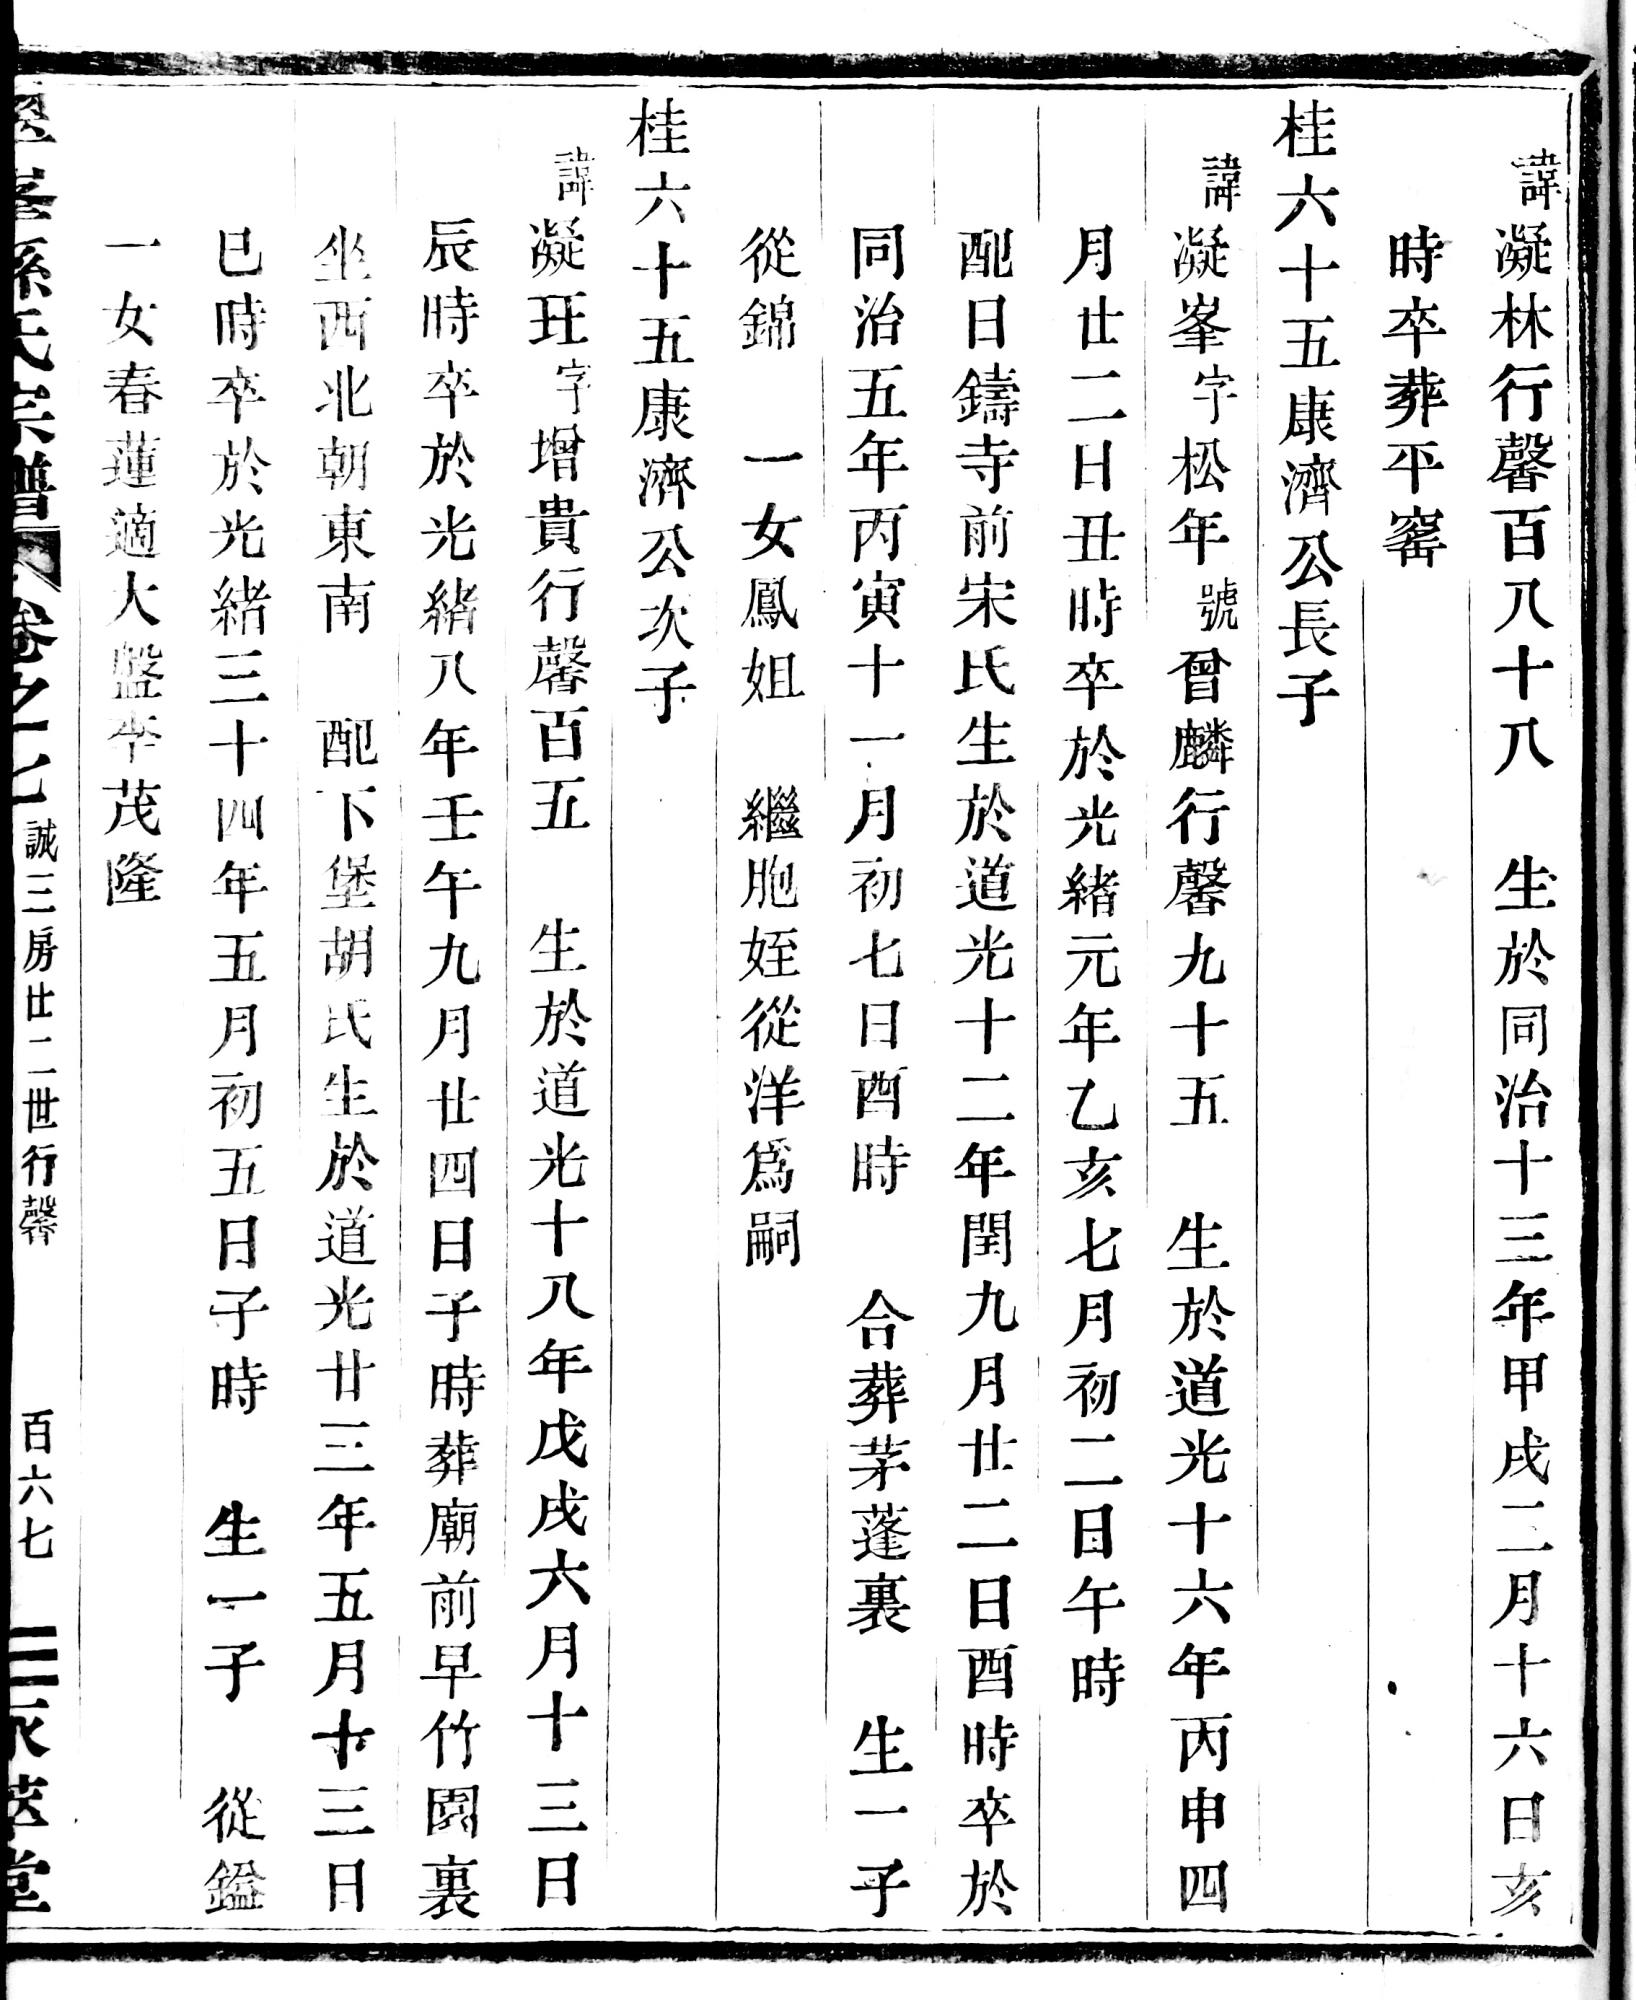 諱凝林行馨百八十八　生於同治十三年甲戌二月十六日亥
時卒葬平窰
桂六十五康濟公長子
諱凝峯字松年號曾麟行馨九十五　生於道光十六年丙申四
月廿二日丑時卒於光緒元年乙亥七月初二日午時
配日鑄寺前宋氏生於道光十二年閏九月廿二日酉時卒於
同治五年丙寅十一月初七日酉時　合葬茅蓬裏　生一子
從錦　一女鳳姐　繼胞姪從洋爲嗣
桂六十五康濟公次子
諱凝玨字增貴行馨百五　生於道光十八年戊戌六月十三日
辰時卒於光緒八年壬午九月廿四日子時葬廟前早竹園裏
坐西北朝東南　配下堡胡氏生於道光廿三年五月十三日
巳時卒於光緒三十四年五月初五日子時　生一子　從鎰
一女春蓮適大盤李茂隆
峯孫氏宗譜　卷之七　誠三房廿二世行馨　百六七　堂